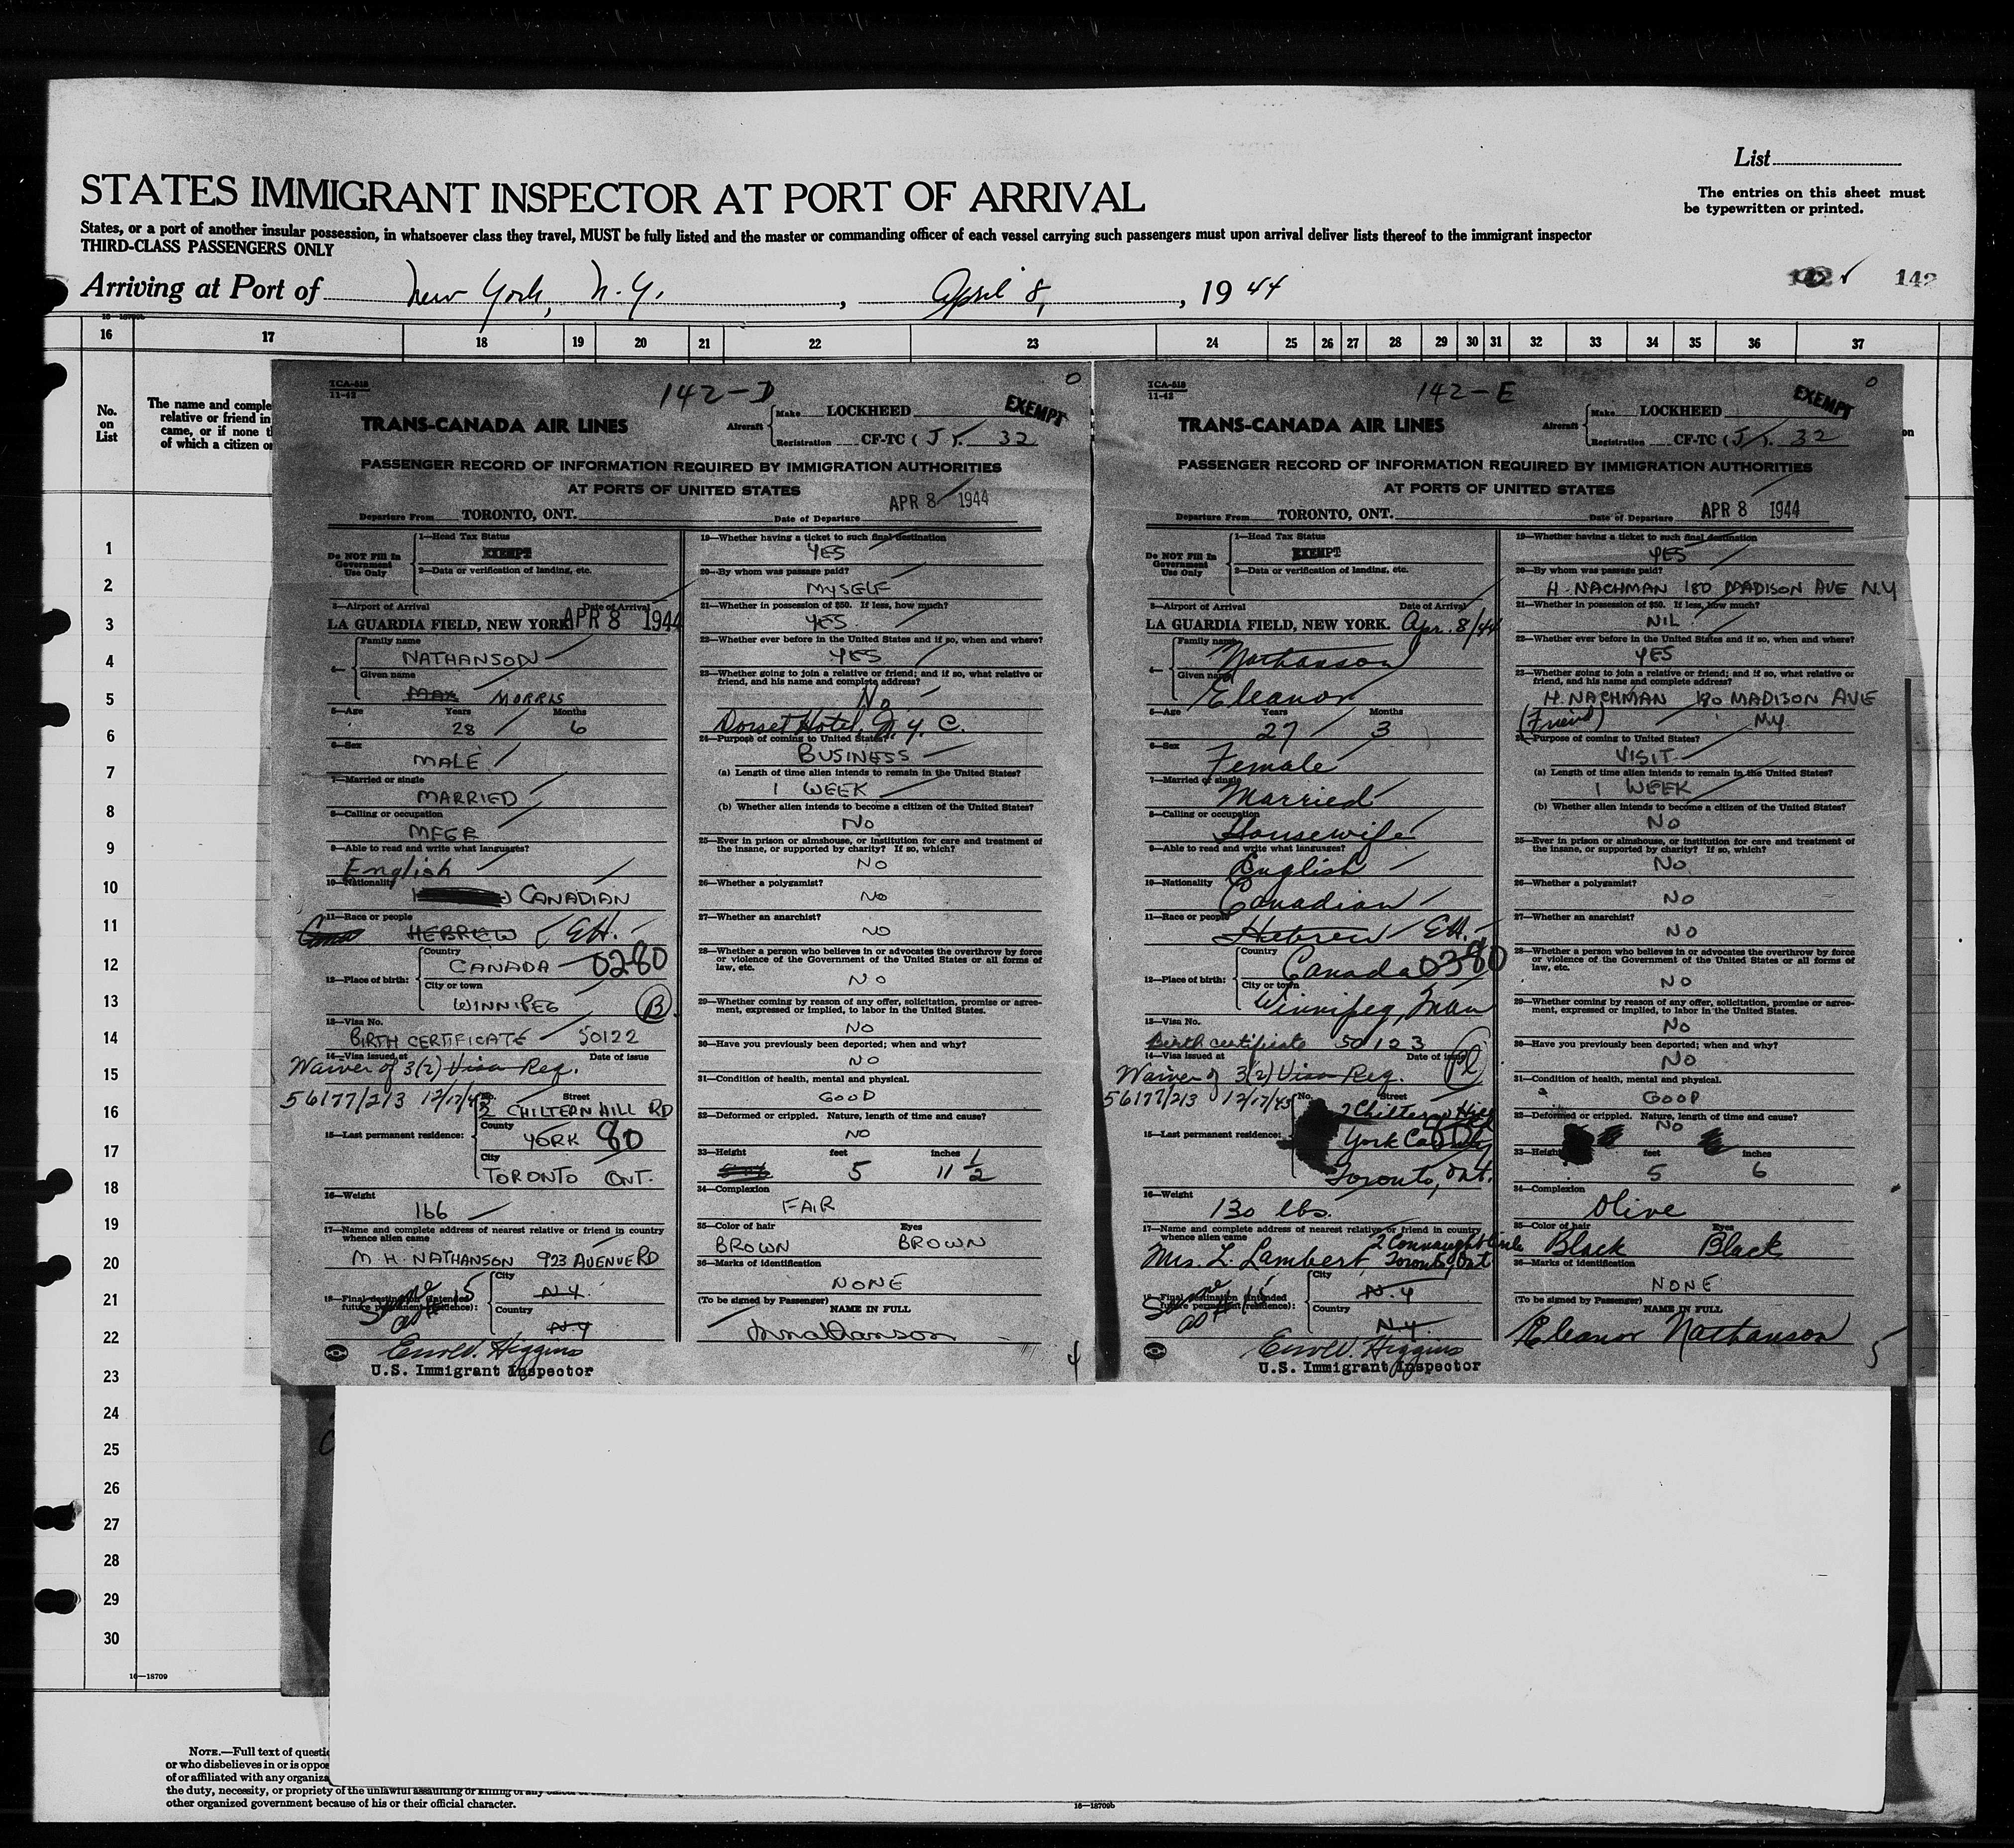 List
STATES IMMIGRANT INSPECTOR AT PORT OF ARRIVAL
The entries on this sheet must
be typewritten or printed.
States, or a port of another insular possession, in whatsoever class they travel, MUST be fully listed and the master or commanding officer of each vessel carrying such passengers must upon arrival deliver lists thereof to the immigrant inspector
THIRD-CLASS PASSENGERS ONLY
Arriving at Port of New York, N.Y., April 8, 1944
142 142
16 17 18 19 20 21 22 23 24 25 26 27 28 29 30 31 32 33 34 35 36 37
No.
on
List
The name and comple
relative or friend in
came, or if none t
of which a citizen or
1
2
3
4
5
6
7
8
9
10
11
12
13
14
15
16
17
18
19
20
21
22
23
24
25
26
27
28
29
30
TCA-518
11-42
142-D
EXEMPT
TRANS-CANADA AIR LINES
Aircraft
Make LOCKHEED
Registration CF-TC (J). 32
PASSENGER RECORD OF INFORMATION REQUIRED BY IMMIGRATION AUTHORITIES
AT PORTS OF UNITED STATES
Departure From TORONTO, ONT.
Date of Departure APR 8 1944
Do NOT Fill In
Government
Use Only
1—Head Tax Status
EXEMPT
2—Data or verification of landing, etc.
3—Airport of Arrival Date of Arrival
LA GUARDIA FIELD, NEW YORK. APR 8 1944
4— Family name
NATHANSON
Given name
MAX MORRIS
5—Age Years Months
28 6
6—Sex
MALE
7—Married or single
MARRIED
8—Calling or occupation
MFGR
9—Able to read and write what languages?
English
10—Nationality
CANADIAN
11—Race or people
HEBREW EH.
12—Place of birth:
Country
CANADA 0280
City or town
WINNIPEG B
13—Visa No.
BIRTH CERTIFICATE 50122
14—Visa issued at Date of issue
Waiver of 3(2) Visa Req.
56177/213 12/17/43
15—Last permanent residence:
No. Street
2 CHILTERN HILL RD
County
YORK 80
City
TORONTO ONT.
16—Weight
166
17—Name and complete address of nearest relative or friend in country
whence alien came
M. H. NATHANSON 923 AVENUE RD
18—Final destination (intended
future permanent residence):
Same as 15
City
N.Y.
Country
N.Y.
Errol V. Higgins
U.S. Immigrant Inspector
19—Whether having a ticket to such final destination
YES
20—By whom was passage paid?
MYSELF
21—Whether in possession of $50. If less, how much?
YES
22—Whether ever before in the United States and if so, when and where?
YES
23—Whether going to join a relative or friend; and if so, what relative or
friend, and his name and complete address?
No
Dorset Hotel, N. Y. C.
24—Purpose of coming to United States?
BUSINESS
(a) Length of time alien intends to remain in the United States?
1 WEEK
(b) Whether alien intends to become a citizen of the United States?
NO
25—Ever in prison or almshouse, or institution for care and treatment of
the insane, or supported by charity? If so, which?
NO
26—Whether a polygamist?
NO
27—Whether an anarchist?
NO
28—Whether a person who believes in or advocates the overthrow by force
or violence of the Government of the United States or all forms of
law, etc.
NO
29—Whether coming by reason of any offer, solicitation, promise or agree-
ment, expressed or implied, to labor in the United States.
NO
30—Have you previously been deported; when and why?
NO
31—Condition of health, mental and physical.
GOOD
32—Deformed or crippled. Nature, length of time and cause?
NO
33—Height feet inches
5 11 1/2
34—Complexion
FAIR
35—Color of hair Eyes
BROWN BROWN
36—Marks of identification
NONE
(To be signed by Passenger) NAME IN FULL
Nathanson
4
TCA-518
11-42
142-E
EXEMPT
TRANS-CANADA AIR LINES
Aircraft
Make LOCKHEED
Registration CF-TC (J). 32
PASSENGER RECORD OF INFORMATION REQUIRED BY IMMIGRATION AUTHORITIES
AT PORTS OF UNITED STATES
Departure From TORONTO, ONT.
Date of Departure APR 8 1944
Do NOT Fill In
Government
Use Only
1—Head Tax Status
EXEMPT
2—Data or verification of landing, etc.
3—Airport of Arrival Date of Arrival
LA GUARDIA FIELD, NEW YORK. Apr. 8/44
4— Family name
Nathanson
Given name
Eleanor
5—Age Years Months
27 3
6—Sex
Female
7—Married or single
Married
8—Calling or occupation
Housewife
9—Able to read and write what languages?
English
10—Nationality
Canadian
11—Race or people
Hebrew EH.
12—Place of birth:
Country
Canada 0380
City or town
Winnipeg, Man
13—Visa No.
Birth certificate 50123
14—Visa issued at Date of issue
Waiver of 3(2) Visa Req.
56177/213 12/17/43
15—Last permanent residence:
No. Street
2 Chiltern Hill
York County 80
Toronto, Ont.
16—Weight
130 lbs.
17—Name and complete address of nearest relative or friend in country
whence alien came
2 Connaught Circle
Mrs. L. Lambert, Toronto, Ont
18—Final destination (intended
future permanent residence):
Same as 15
City
N.Y
Country
N.Y.
Errol V. Higgins
U.S. Immigrant Inspector
19—Whether having a ticket to such final destination
YES
20—By whom was passage paid?
H. NACHMAN 180 MADISON AVE N.Y
21—Whether in possession of $50. If less, how much?
NIL
22—Whether ever before in the United States and if so, when and where?
YES
23—Whether going to join a relative or friend; and if so, what relative or
friend, and his name and complete address?
H. NACHMAN 180 MADISON AVE
(Friend) N.Y.
24—Purpose of coming to United States?
VISIT
(a) Length of time alien intends to remain in the United States?
1 WEEK
(b) Whether alien intends to become a citizen of the United States?
NO
25—Ever in prison or almshouse, or institution for care and treatment of
the insane, or supported by charity? If so, which?
NO.
26—Whether a polygamist?
NO
27—Whether an anarchist?
NO
28—Whether a person who believes in or advocates the overthrow by force
or violence of the Government of the United States or all forms of
law, etc.
NO
29—Whether coming by reason of any offer, solicitation, promise or agree-
ment, expressed or implied, to labor in the United States.
NO
30—Have you previously been deported; when and why?
NO
31—Condition of health, mental and physical.
GOOD
32—Deformed or crippled. Nature, length of time and cause?
NO
33—Height feet inches
5 6
34—Complexion
Olive
35—Color of hair Eyes
Black Black
36—Marks of identification
NONE
(To be signed by Passenger) NAME IN FULL
Eleanor Nathanson
5
16—18709
NOTE.—Full text of questio
or who disbelieves in or is oppos
of or affiliated with any organiza
the duty, necessity, or propriety of the unlawful assaulting or killing of any
other organized government because of his or their official character.
16—18709b